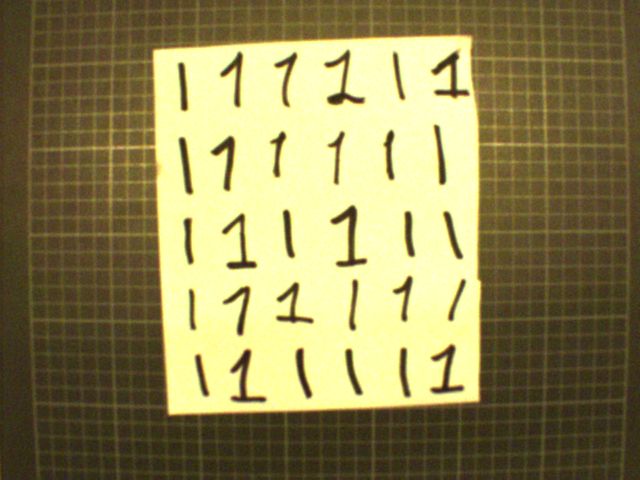 1 1 1 1 1 1
1 1 1 1 1 1
1 1 1 1 1 1
1 1 1 1 1 1
1 1 1 1 1 1